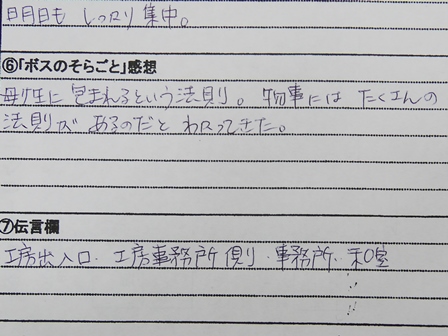 明日も しっかり 集中。
⑥「ボスのそらごと」感想
母性に 包まれるという法則。 物事には たくさんの
法則が あるのだと わかってきた。
⑦伝言欄
工房出入口・工房事務所側・事務所・和室